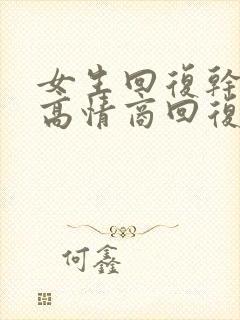 女生回復幹
高情商回復
何鑫